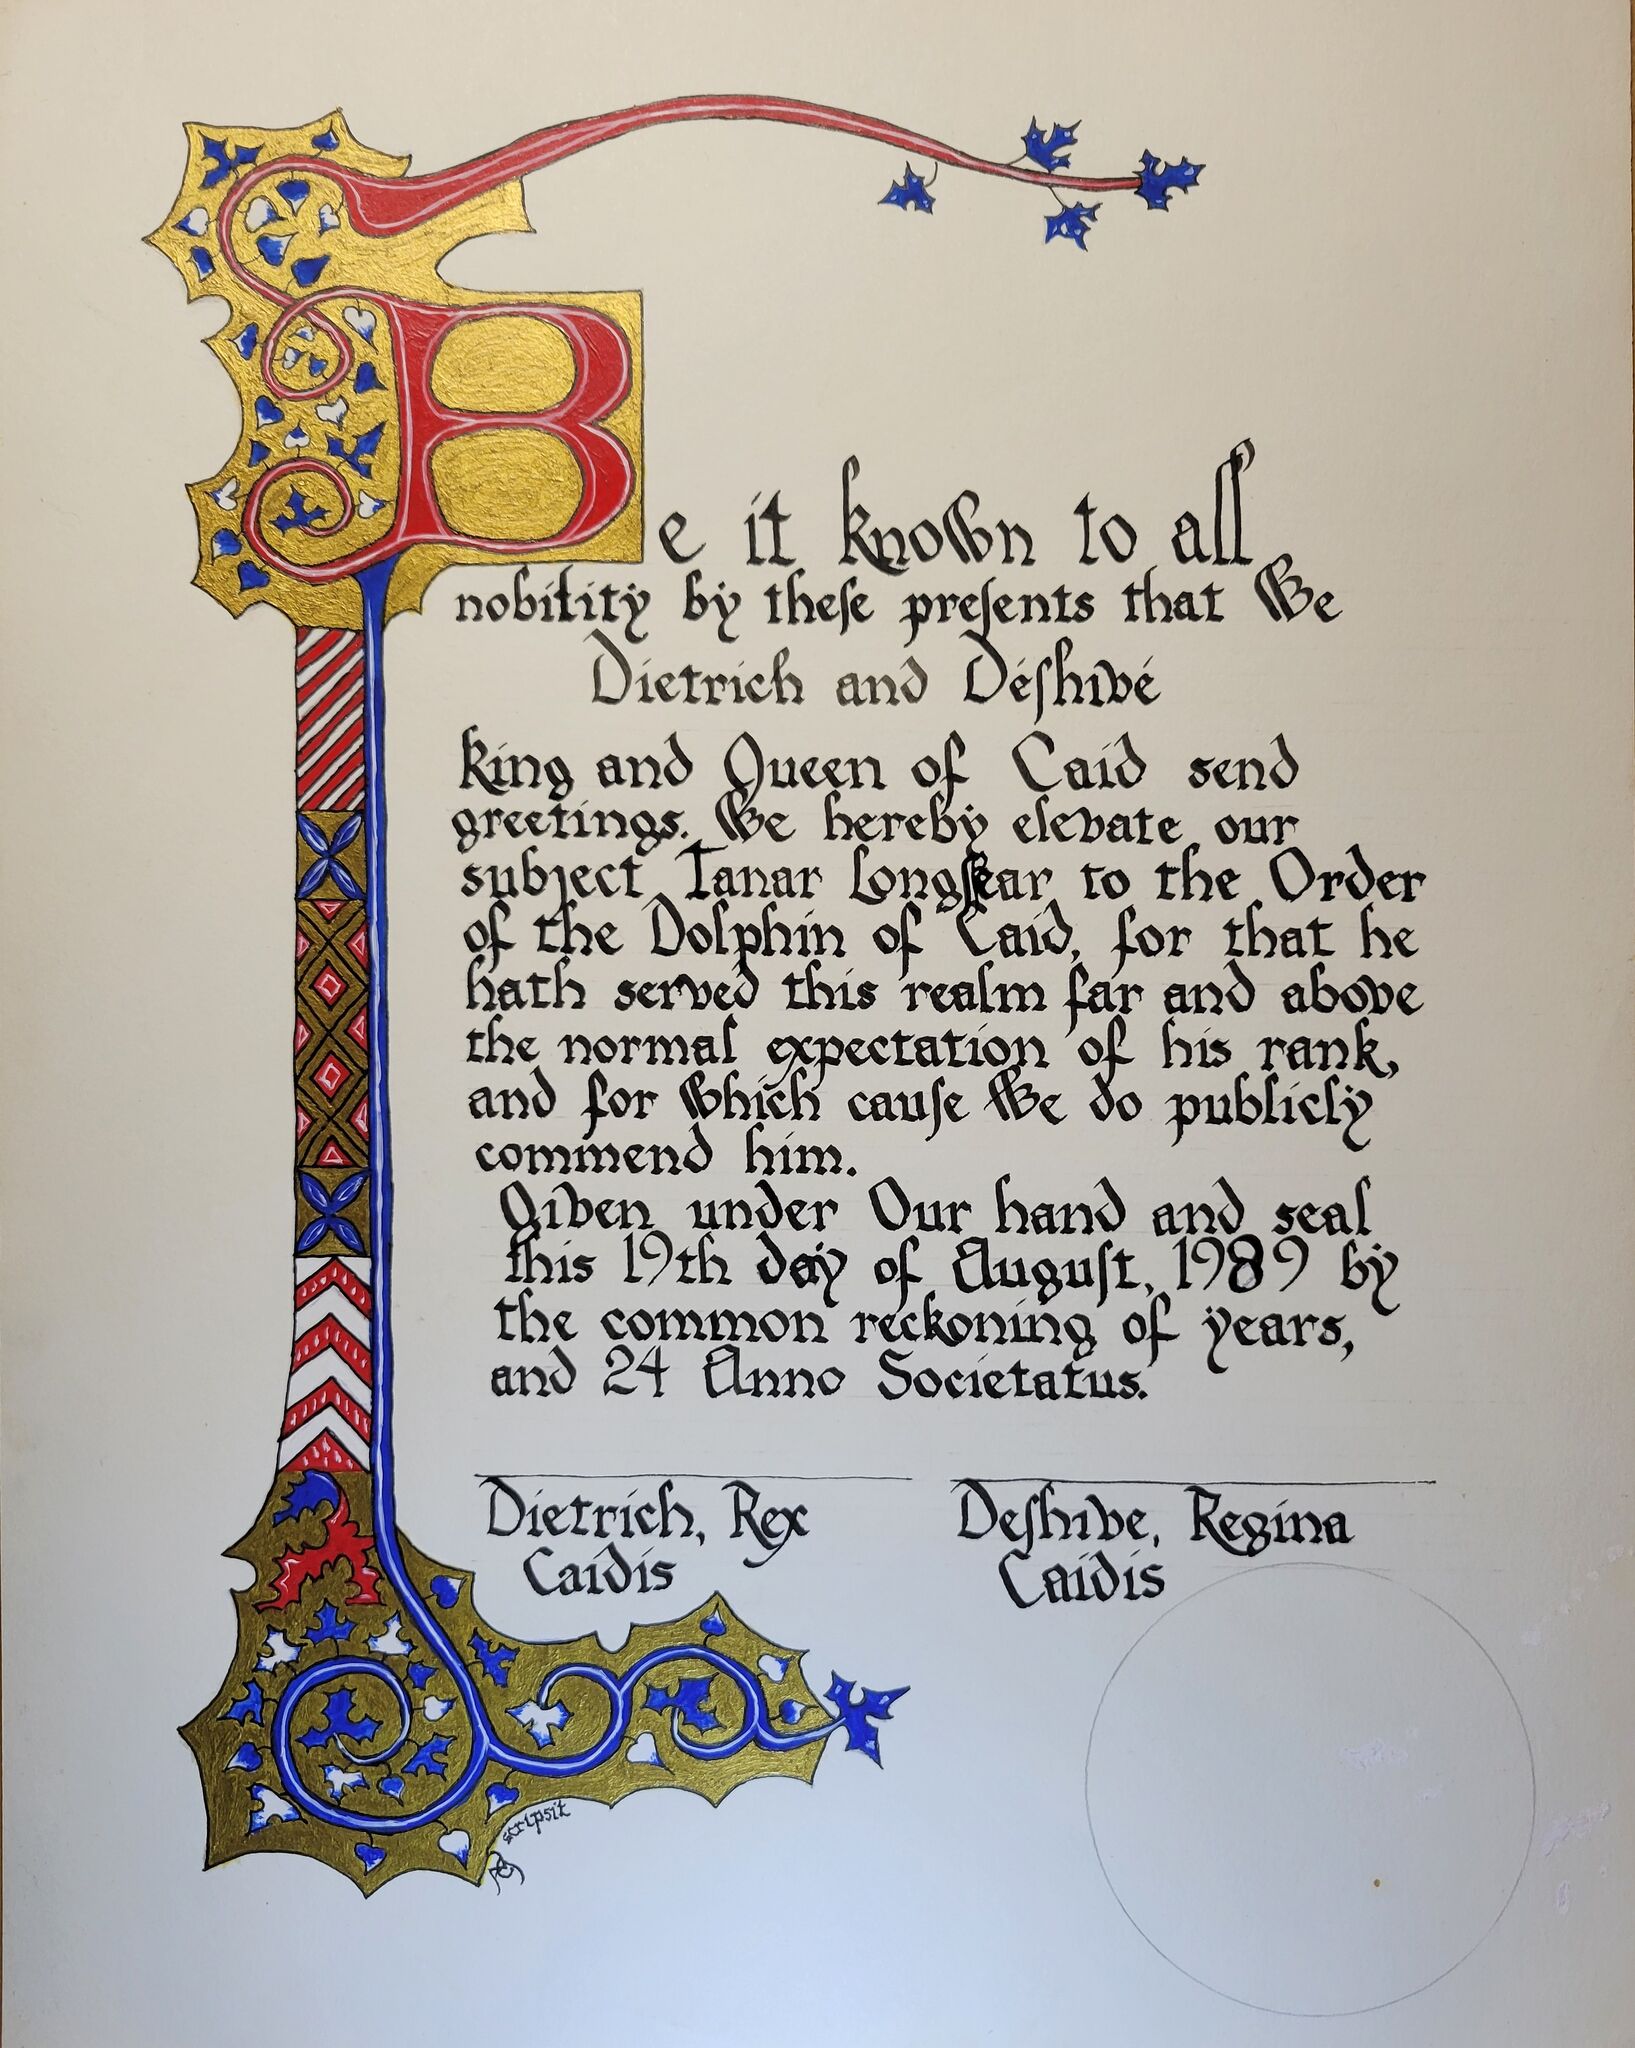 Be it known to all
nobility by these presents that We
Dietrich and Déshivé
King and Queen of Caid send
greetings. We hereby elevate our
subject Tanar Longspear to the Order
of the Dolphin of Caid, for that he
hath served this realm far and above
the normal expectation of his rank,
and for which cause We do publicly
commend him.
Given under Our hand and seal
this 19th day of August, 1989 by
the common reckoning of years,
and 24 Anno Societatus.
Dietrich, Rex Deshive, Regina
Caidis Caidis
scripsit